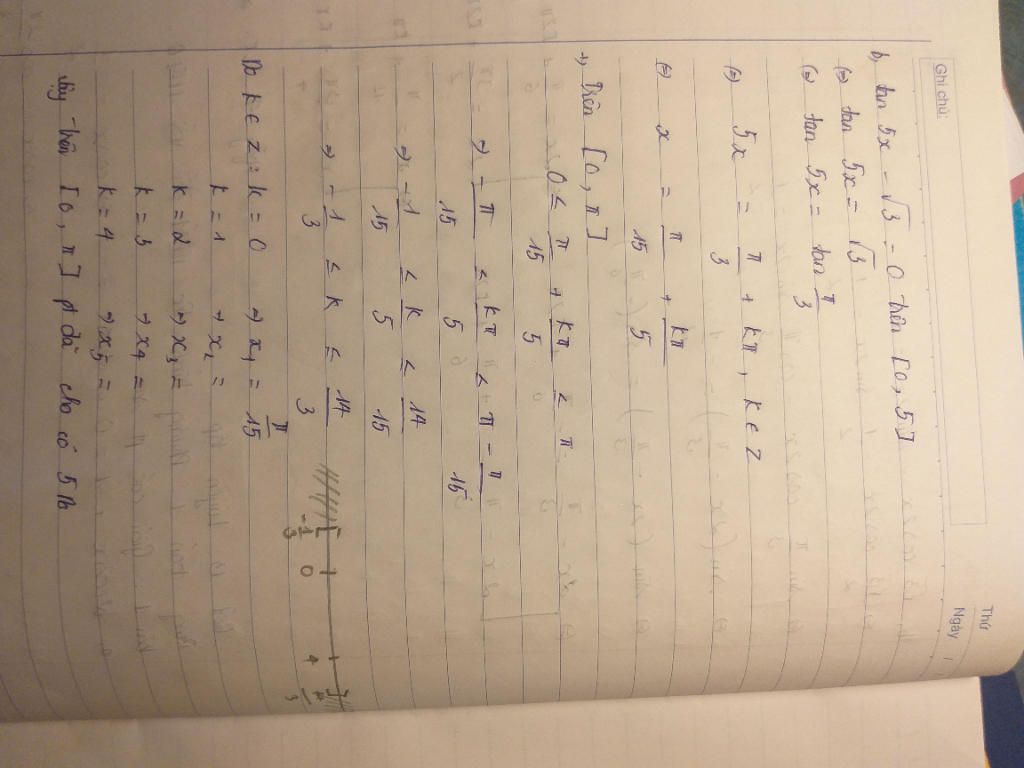 Ghi chú:
Thứ
Ngày
b, tan 5x - √3 = 0 trên [0, 5]
(=) tan 5x = √3
(=) tan 5x = tan π/3
(=) 5x = π/3 + kπ, k ∈ Z
(=) x = π/15 + kπ/5
Trên [0, π]
0 ≤ π/15 + kπ/5 ≤ π
=> -π/15 ≤ kπ/5 ≤ π - π/15
=> -1/15 ≤ k/5 ≤ 14/15
=> -1/3 ≤ k ≤ 14/3
-1/3 0 4 14/3
Do k ∈ Z: k = 0 => x1 = π/15
k = 1 => x2 =
k = 2 => x3 =
k = 3 => x4 =
k = 4 => x5 =
Vậy trên [0, π] pt đã cho có 5 no